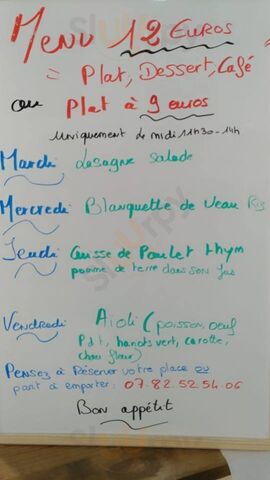 Menu 12 Euros
= Plat, Dessert, Café
ou Plat à 9 euros
Uniquement de midi 11h30-14h
Mardi Lasagne Salade
Mercredi Blanquette de Veau Riz
Jeudi Cuisse de Poulet thym
pomme de terre dans son jus
Vendredi Aïoli (poisson, oeuf
Pdt, haricots vert, carotte,
chou fleur)
Pensez à Réserver votre place ou
part à emporter: 07.82.52.54.06
Bon appétit
Sluurpy